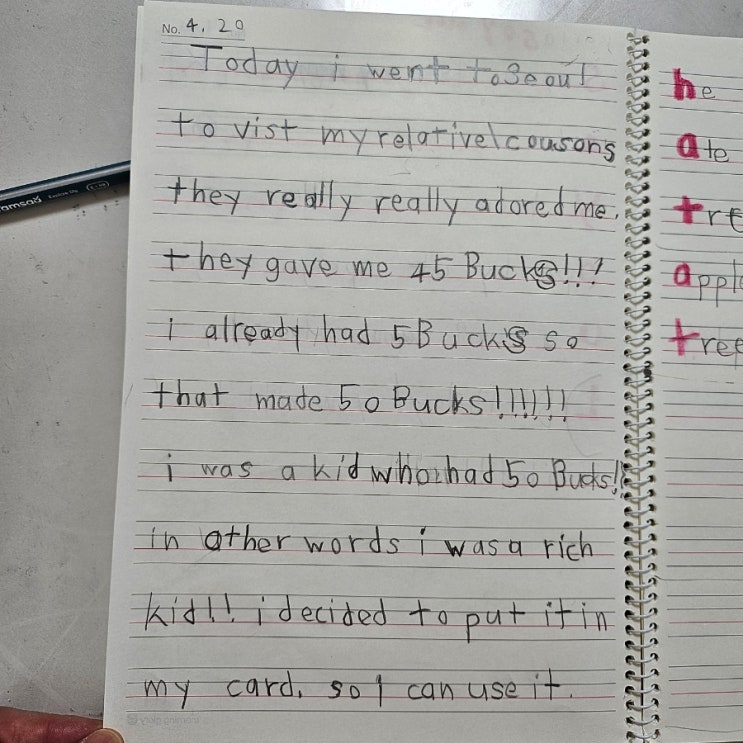 No. 4. 20
Today i went to Seoul
to vist my relative\cousons
they really really adored me.
they gave me 45 Bucks!!!
i already had 5 Bucks so
that made 50 Bucks!!!!!!
i was a kid who had 50 Bucks!!
in other words i was a rich
kid!! i decided to put it in
my card. so I can use it.
he
ate
tre
apple
tree